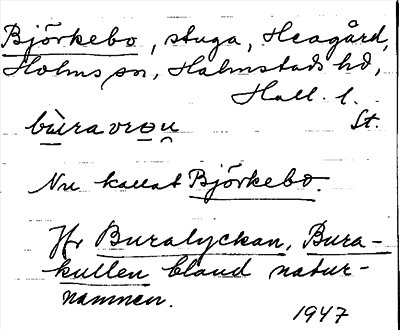 Björkebo, stuga, Heagård,
Holms sn, Halmstads hd,
Hall. l.
bùravrəu̯ St.
Nu kallat Björkebo.
Jfr Buralyckan, Bura-
kullen bland natur-
namnen.
1947